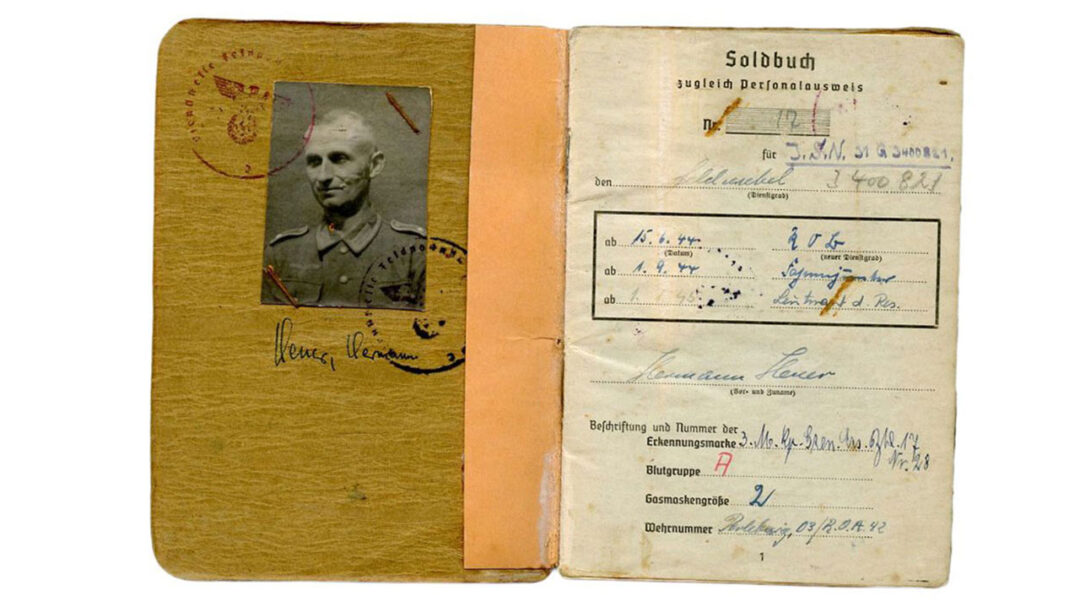 Heuer, Hermann
Soldbuch
zugleich Personalausweis
Nr. 17
für J.S.N. 31 G 3400821.
den Feldwebel 3 400 821
(Dienstgrad)
ab 15.6.44 R O B
(Datum) (neuer Dienstgrad)
ab 1.9.44
ab 1. 45 Leutnant d. Res.
Hermann Heuer
(Vor- und Zuname)
Beschriftung und Nummer der
Erkennungsmarke 3. M. Kp. Gren. Ers. Btl. 17
Nr. 28
Blutgruppe A
Gasmaskengröße 2
Wehrnummer Perleberg, 03/ 42
1